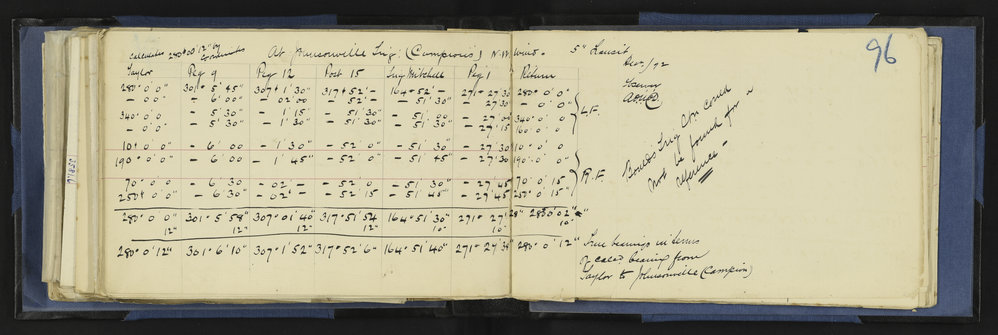 96
calculated 280° 0' 12" by
At Johnsonville Trig: (Campion's) N.W. Wind. 5" Transit
Taylor Peg 9 Peg 12 Post 15 Trig Mitchell Peg 1 Return
280° 0' 0" 301° 5' 45" 307° 1' 30" 317° 52' — 164° 52' — 271° 27' 30 280° 0' 0"
— 0' 0" — 6' 00" — 02' 00 — 52' — — 51' 30" — 27' 30 — 0' 0"
340° 0' 0 — 5' 30 — 1' 15 — 51' 30 — 51' 00 — 27' 00 340° 0' 0" L.F.
— 0' 0" — 5' 30" — 1' 30" — 51' 30 — 51' 30" — 27' 15 160° 0' 0"
10° 0' 0" — 6' 00 — 1' 30" — 52' 0 — 51' 30 — 27' 30 10° 0' 0
190° 0' 0" — 6' 00 — 1' 45" — 52' 0 — 51' 45" — 27' 30 190° 0' 0"
70° 0' 0 — 6' 30 — 02' — — 52' 0 — 51' 30" — 27' 45 70° 0' 15 R.F.
250° 0' 0" — 6' 30 — 02' — — 52' 15 — 51' 45" — 27' 45 250° 0' 15"
280° 0' 0" 301° 5' 58" 307° 01' 40" 317° 51' 54 164° 51' 30" 271° 27' 28" 280° 0' 02"
12" 12" 12" 12" 10" 10" 10"
280° 0' 12" 301° 6' 10" 307° 1' 52" 317° 52' 6" 164° 51' 40" 271° 27' 38" 280° 0' 12"
Trig Stn could
not be found for a
reference —
True bearings in terms
of calcd bearing from
Taylor to Johnsonville (Campion)